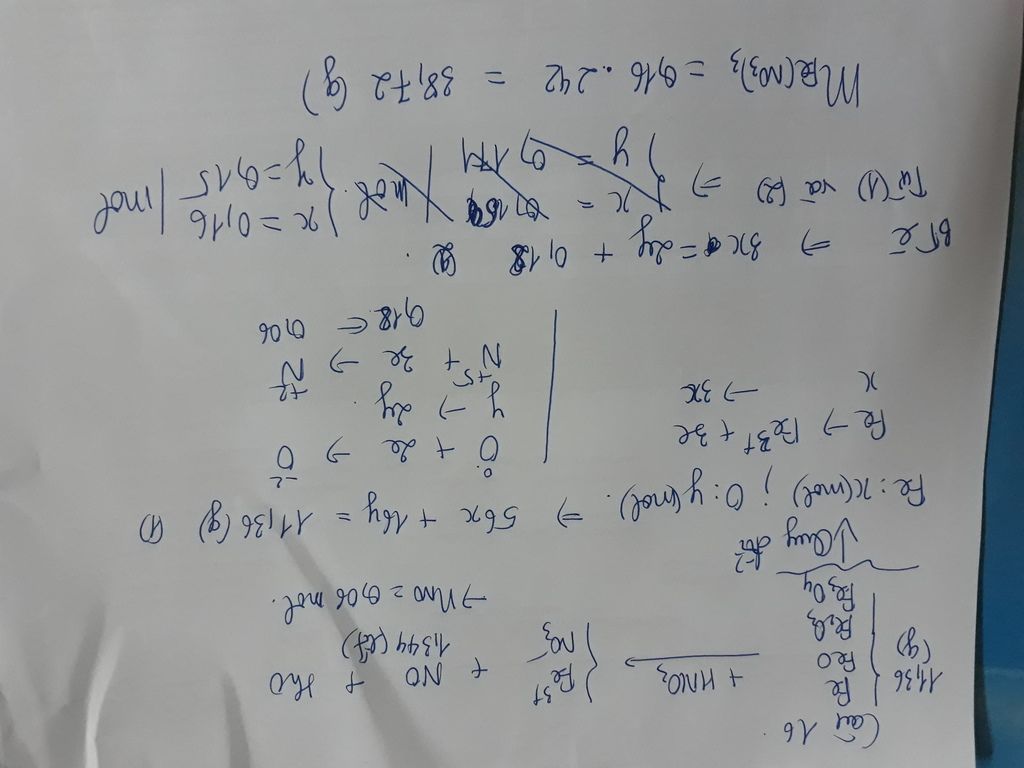 Câu 16
11,36 (g) { Fe FeO Fe2O3 Fe3O4 + HNO3 → { Fe3+ NO3- + NO + H2O
1,344 (lít)
→ nNO = 0,06 mol.
↓ Quy đổi
Fe: x(mol) ; O: y(mol). ⇒ 56x + 16y = 11,36 (g) (1)
Fe → Fe3+ + 3e
x → 3x
O0 + 2e → O-2
y → 2y
N+5 + 3e → N+2
0,18 ← 0,06
BT e ⇒ 3x = 2y + 0,18 (2).
Từ (1) và (2) ⇒ { x = 0,16 y = 0,15 | mol
mFe(NO3)3 = 0,16 . 242 = 38,72 (g)